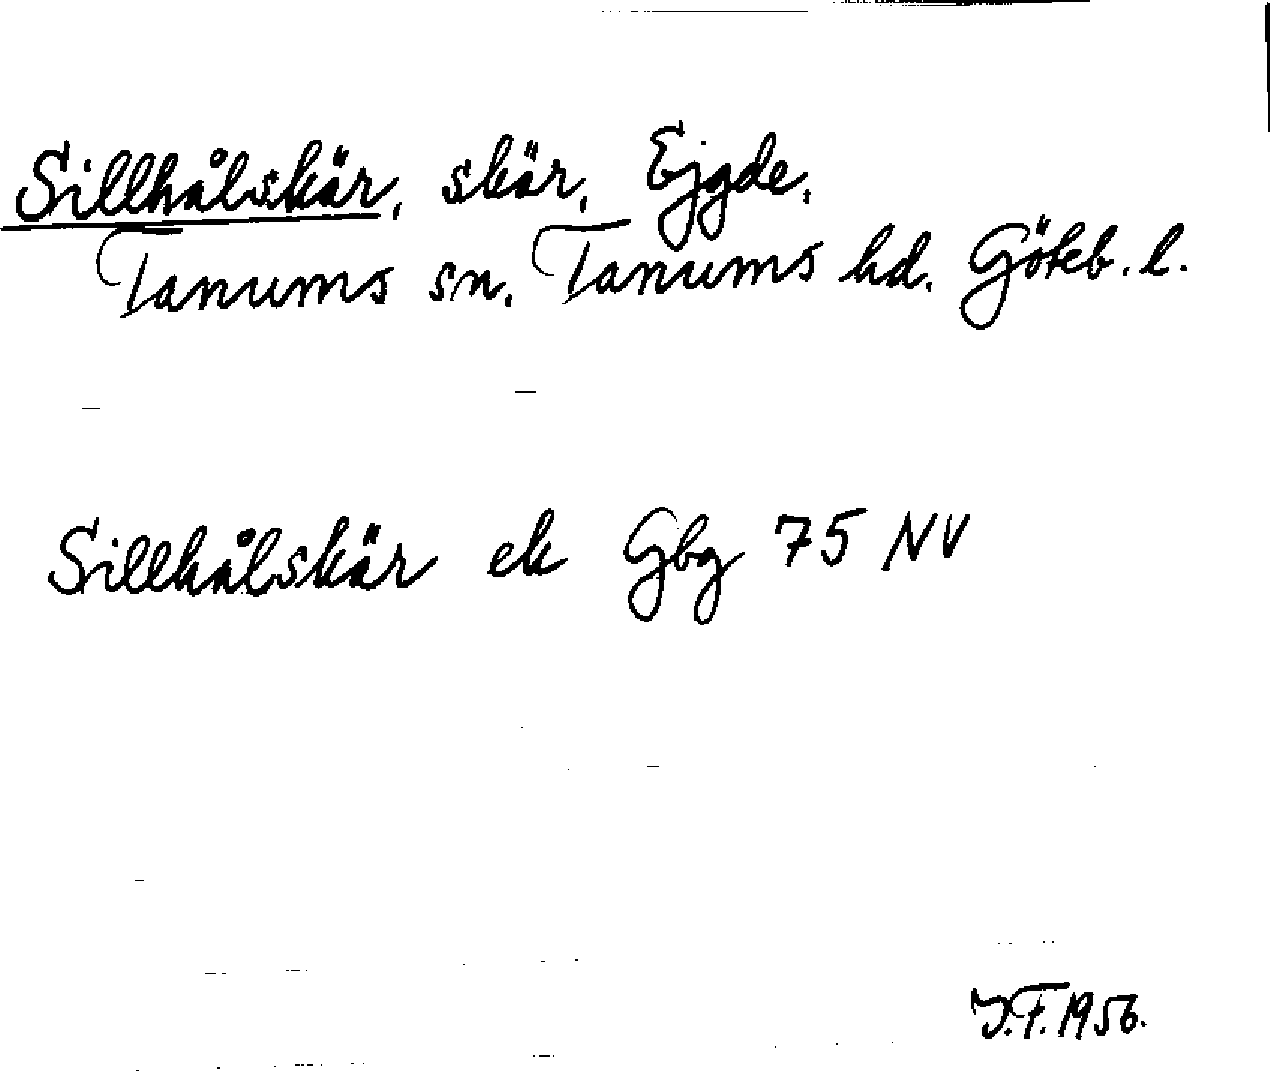 Sillhålskär, skär, Ejgde,
Tanums sn. Tanums hd. Göteb. l.
Sillhålskär ek Gbg 75 NV
J.F. 1956.